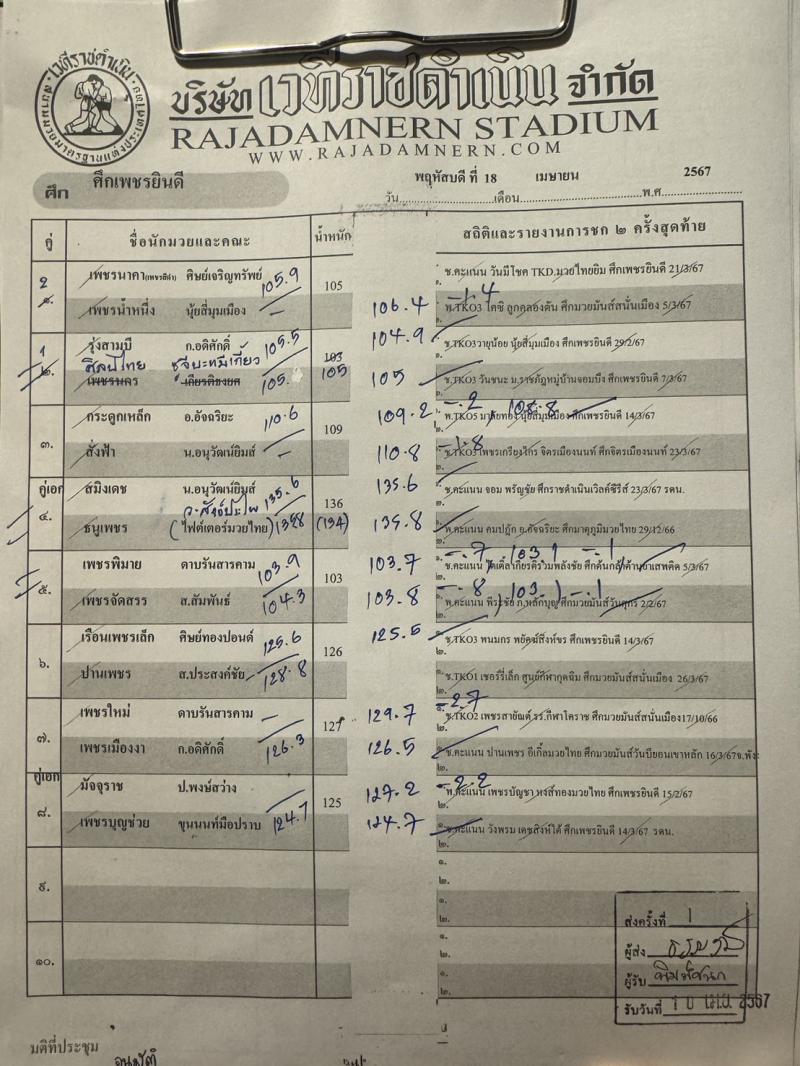 เวทีราชดำเนิน
บริษัท เวทีราชดำเนิน จำกัด
RAJADAMNERN STADIUM
WWW.RAJADAMNERN.COM
ศึก ศึกเพชรยินดี
พฤหัสบดี ที่ 18 เมษายน 2567
วัน เดือน พ.ศ.
คู่ ชื่อนักมวยและคณะ น้ำหนัก สถิติและรายงานการชก ๒ ครั้งสุดท้าย
2 เพชรนาคา ศิษย์เจริญทรัพย์ 105.9 105 ช.คะแนน วันมีโชค TKD.มวยไทยยิม ศึกเพชรยินดี 21/3/67
๑. เพชรน้ำหนึ่ง นุ้ยสี่มุมเมือง 106.4 -1.4 พ.TKO3 ไคซิ ลูกคลองตัน ศึกมวยมันส์สนั่นเมือง 5/3/67
1 รุ้งสามบี ก.อดิศักดิ์ 105.5 103 104.9 ช.TKO3วายุน้อย นุ้ยสี่มุมเมือง ศึกเพชรยินดี 29/2/67
ศิลป์ไทย
๒. เพชรนคร เกียรติยงยศ 105. 105 105 ช.TKO3 วันชนะ ม.ราชภัฏหมู่บ้านจอมบึง ศึกเพชรยินดี 7/3/67
กระดูกเหล็ก อ.อัจฉริยะ 110.6 109 109.2 -.2 108.8 พ.TKO5 นุ้ยสี่มุมเมือง ศึกเพชรยินดี 14/3/67
๓. สั่งฟ้า น.อนุวัฒน์ยิมส์ 110.8 -1.8 ช.TKO3 เพชรเกรียงไกร จิตรเมืองนนท์ ศึกจิตรเมืองนนท์ 23/3/67
คู่เอก สมิงเดช น.อนุวัฒน์ยิมส์ 135.6 136 135.6 ช.คะแนน จอม พรัญชัย ศึกราชดำเนินเวิลด์ซีรีส์ 23/3/67 รดน.
๔. ธนูเพชร (ไฟต์เตอร์มวยไทย) (134) 135.8 พ.คะแนน คมปฎัก อ.อัจฉริยะ ศึกมาตุภูมิมวยไทย 29/12/66
เพชรพิมาย ดาบรันสารคาม 103.9 103 103.7 -.7 103.1 -.1 5/3/67
๕. เพชรจัดสรร ส.สัมพันธ์ 104.3 103.8 -.8 103.1 -.1 พ.คะแนน ศึกมวยมันส์วันศุกร์ 2/2/67
เรือนเพชรเล็ก ศิษย์ทองปอนด์ 125.6 126 125.5 ช.TKO3 พนมกร พยัคฆ์สิงห์ขร ศึกเพชรยินดี 14/3/67
๖. ปานเพชร ส.ประสงค์ชัย 128.8 ช.TKO1 เชอร์รี่เล็ก ศูนย์กีฬากุดฉิม ศึกมวยมันส์สนั่นเมือง 26/3/67
เพชรใหม่ ดาบรันสารคาม 127 129.7 -2.7 ช.TKO2 เพชรสายัณต์ รร.กีฬาโคราช ศึกมวยมันส์สนั่นเมือง17/10/66
๗. เพชรเมืองงา ก.อดิศักดิ์ 126.3 126.5 ช.คะแนน ปานเพชร อีเกิ้ลมวยไทย ศึกมวยมันส์วันบียอนเขาหลัก 16/3/67จ.พัง
คู่เอก มัจจุราช ป.พงษ์สว่าง 125 127.2 -2.2 พ.คะแนน เพชรบัญชา หงส์ทองมวยไทย ศึกเพชรยินดี 15/2/67
๘. เพชรบุญช่วย ขุนนนท์มือปราบ 124.7 124.7 ช.คะแนน วังพรม เดชสิงห์ใต้ ศึกเพชรยินดี 14/3/67 รดน.
๙.
๑๐.
ส่งครั้งที่ 1
ผู้ส่ง
ผู้รับ
รับวันที่ 10 เม.ย. 2567
มติที่ประชุม
อนุมัติ